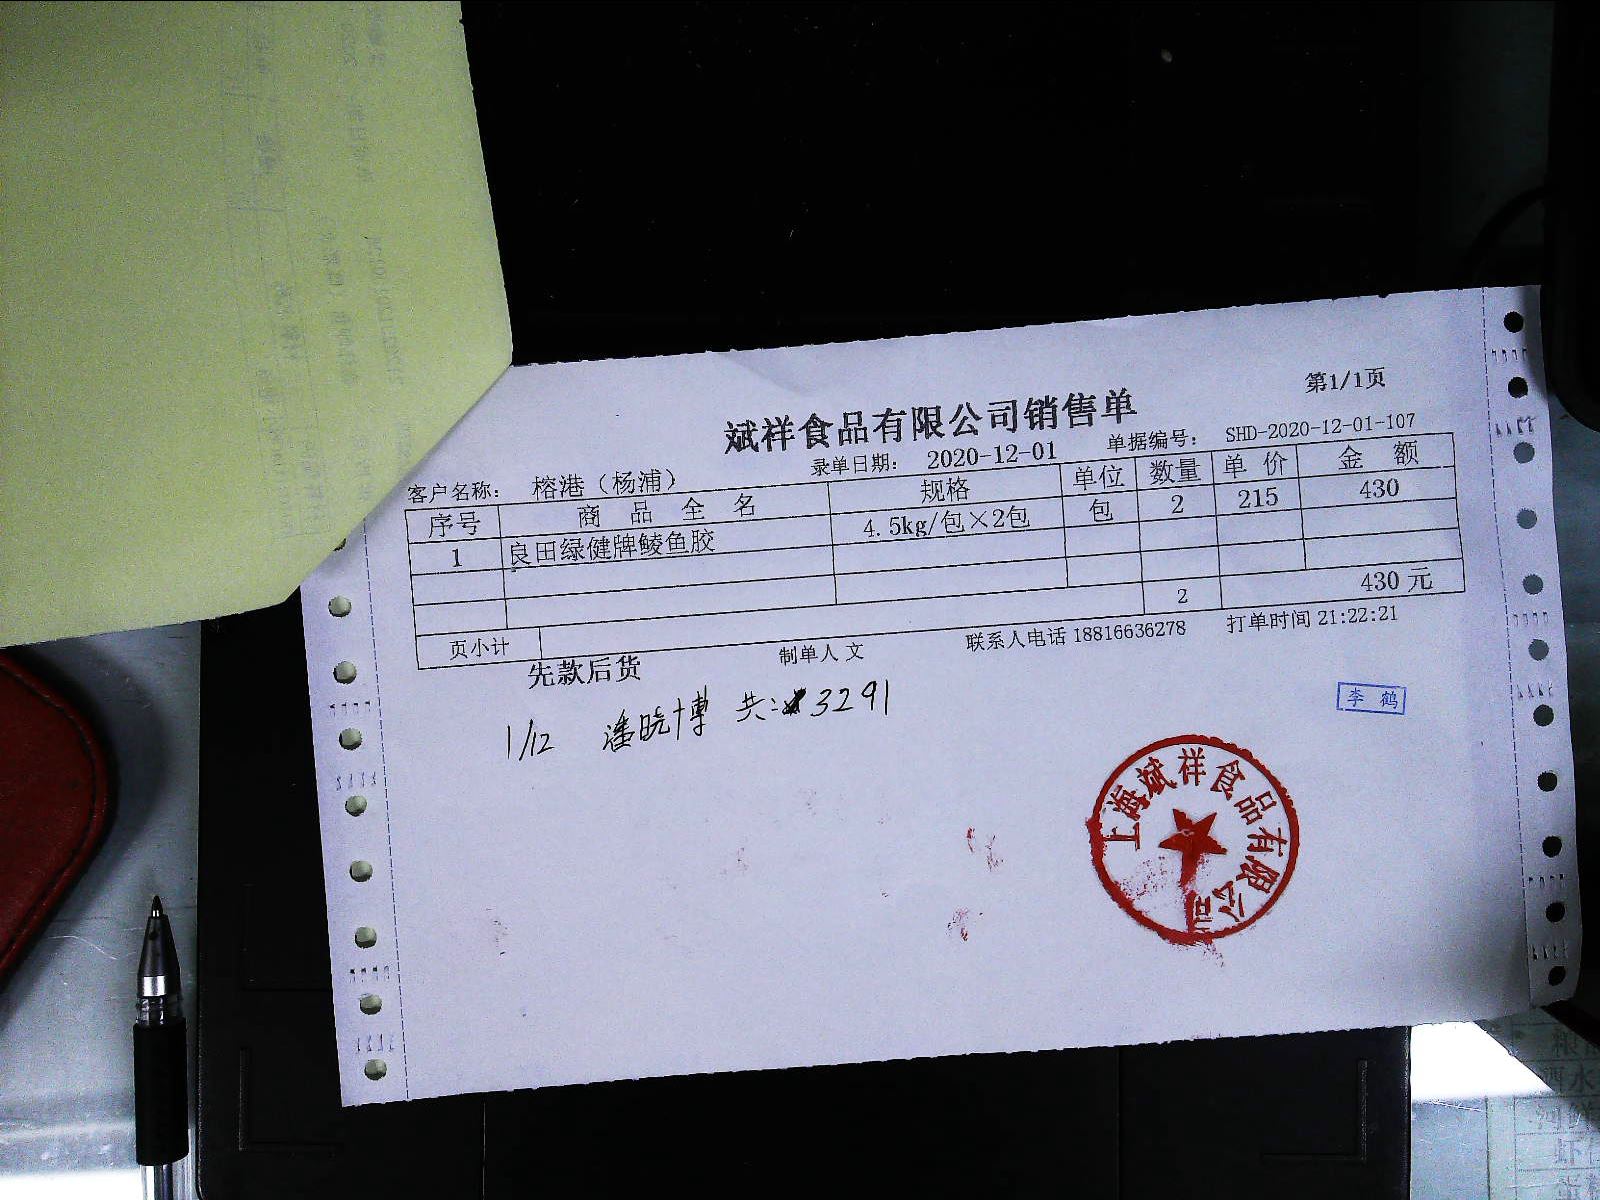 第1/1页
斌祥食品有限公司销售单
客户名称: 榕港（杨浦） 录单日期: 2020-12-01 单据编号: SHD-2020-12-01-107
序号 商品全名 规格 单位 数量 单价 金额
1 良田绿健牌鲮鱼胶 4.5kg/包×2包 包 2 215 430
页小计 2 430元
先款后货 制单人 文 联系人电话 18816636278 打单时间 21:22:21
1/12 潘晓博 共: 3291
李鹤
上海斌祥食品有限公司